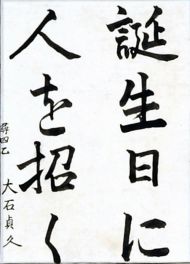 誕生日に
人を招く
尋四乙
大石貞久